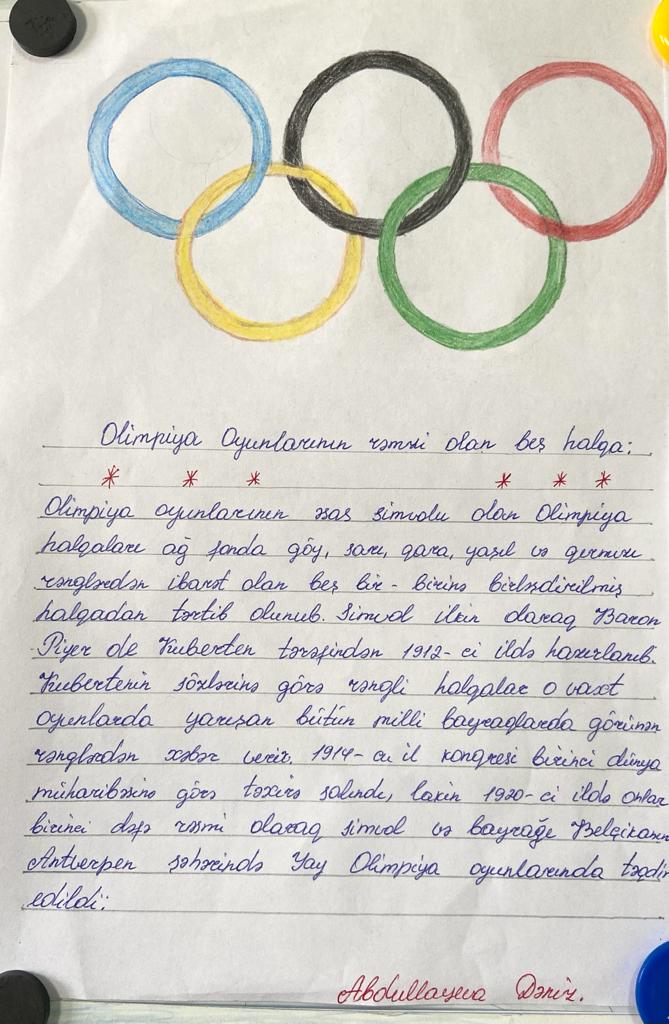 Olimpiya Oyunlarının rəmzi olan beş halqa:
* * * * * *
Olimpiya oyunlarının əsas simvolu olan Olimpiya
halqaları ağ fonda göy, sarı, qara, yaşıl və qırmızı
rənglərdən ibarət olan beş bir-birinə birləşdirilmiş
halqadan tərtib olunub. Simvol ilkin olaraq Baron
Piyer de Kuberten tərəfindən 1912-ci ildə hazırlanıb.
Kubertenin sözlərinə görə rəngli halqalar o vaxt
oyunlarda yarışan bütün milli bayraqlarda görünən
rənglərdən xəbər verir. 1914-cu il konqresi birinci dünya
müharibəsinə görə təxirə salındı, lakin 1920-ci ildə onlar
birinci dəfə rəsmi olaraq simvol və bayrağı Belçikanın
Antverpen şəhərində Yay Olimpiya oyunlarında təqdim
edildi:
Abdullayeva Dəniz.